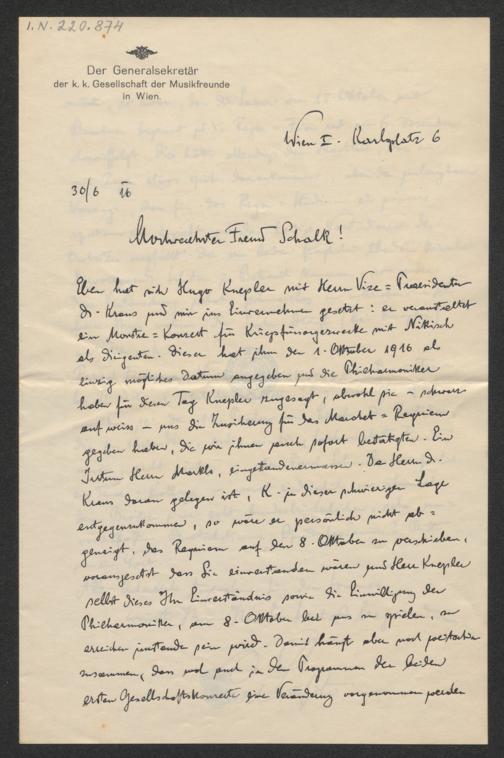 I.N. 220.874
Der Generalsekretär
der k. k. Gesellschaft der Musikfreunde
in Wien.
Wien I. Karlsplatz 6
30/6 16
Hochverehrter Freund Schalk!
Eben hat sich Hugo Knepler mit Herrn Vize=Praesidenten
Dr. Kraus und mir ins Einvernehmen gesetzt: er veranstaltet
ein Monstre=Konzert für Kriegsfürsorgezwecke mit Nikisch
als Dirigenten. Dieser hat ihm den 1. Oktober 1916 als
einzig mögliches Datum angegeben und die Philharmoniker
haben für diesen Tag Knepler zugesagt, obwohl sie – schwarz
auf weiss – uns die Zusicherung für das Requiem
gegeben haben, die wir ihnen auch sofort bestätigten. Ein
Irrtum Herrn Markls, eingestandenermassen. Da Herrn Dr.
Kraus daran gelegen ist, K. in dieser schwierigen Lage
entgegenzukommen, so wäre er persönlich nicht ab=
geneigt, das Requiem auf den 8. Oktober zu verschieben,
vorausgesetzt dass Sie einverstanden wären und Herr Knepler
selbst dieses Ihr Einverständnis sowie die Einwilligung der
Philharmoniker, am 8. Oktober bei uns zu spielen, zu
erreichen imstande sein wird. Damit hängt aber wohl weiterhin
zusammen, dass wohl auch in den Programmen der beiden
ersten Gesellschaftskonzerte eine Veränderung vorgenommen werden